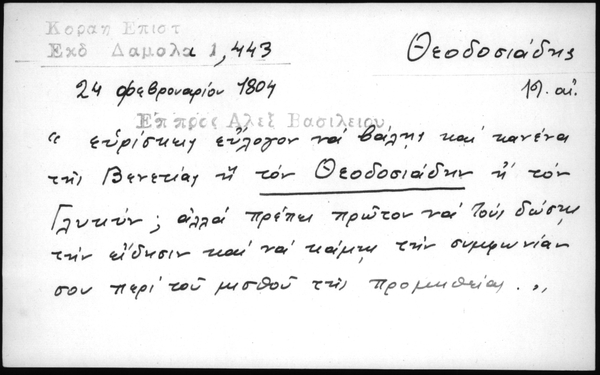 Κοραη Επιστ
Εκδ Δαμαλα 1,443
Θεοδοσιάδης
24 Φεβρουαρίου 1804
Επ προς Αλεξ Βασιλειου
“ εὑρίσκεις εὔλογον νά βάλῃς καί κανένα
τῆς Βενετίας ἤ τόν Θεοδοσιάδην ἤ τόν
Γλυκύν; ἀλλά πρέπει πρῶτον νά τούς δώσῃς
τήν εἴδησιν καί νά κάμῃς τήν συμφωνίαν
σου περί τοῦ μισθοῦ τῆς προμηθείας . „